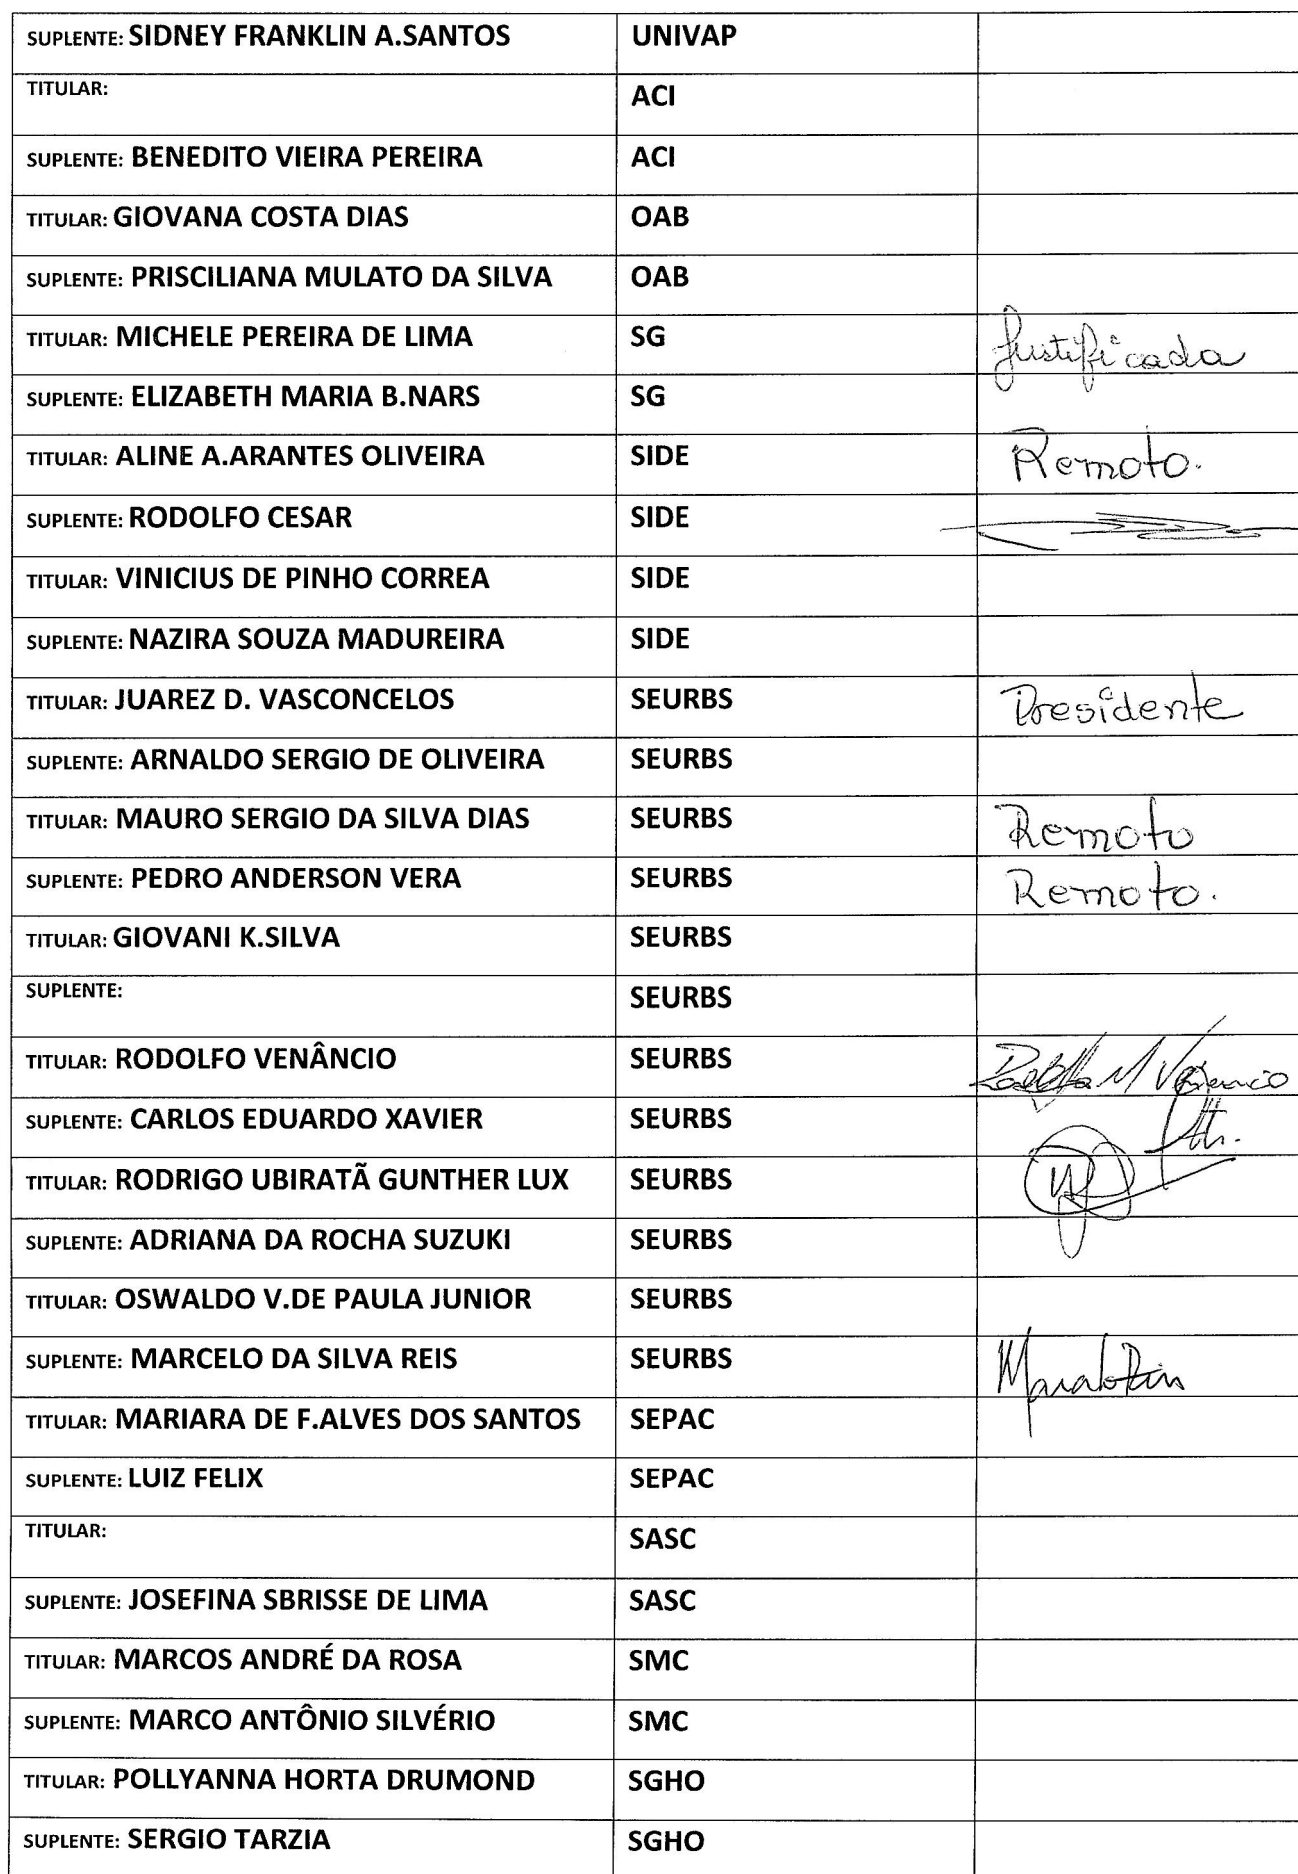 SUPLENTE: SIDNEY FRANKLIN A.SANTOS UNIVAP
TITULAR: ACI
SUPLENTE: BENEDITO VIEIRA PEREIRA ACI
TITULAR: GIOVANA COSTA DIAS OAB
SUPLENTE: PRISCILIANA MULATO DA SILVA OAB
TITULAR: MICHELE PEREIRA DE LIMA SG Justificada
SUPLENTE: ELIZABETH MARIA B.NARS SG
TITULAR: ALINE A.ARANTES OLIVEIRA SIDE Remoto.
SUPLENTE: RODOLFO CESAR SIDE
TITULAR: VINICIUS DE PINHO CORREA SIDE
SUPLENTE: NAZIRA SOUZA MADUREIRA SIDE
TITULAR: JUAREZ D. VASCONCELOS SEURBS Presidente
SUPLENTE: ARNALDO SERGIO DE OLIVEIRA SEURBS
TITULAR: MAURO SERGIO DA SILVA DIAS SEURBS Remoto
SUPLENTE: PEDRO ANDERSON VERA SEURBS Remoto.
TITULAR: GIOVANI K.SILVA SEURBS
SUPLENTE: SEURBS
TITULAR: RODOLFO VENÂNCIO SEURBS
SUPLENTE: CARLOS EDUARDO XAVIER SEURBS
TITULAR: RODRIGO UBIRATÃ GUNTHER LUX SEURBS
SUPLENTE: ADRIANA DA ROCHA SUZUKI SEURBS
TITULAR: OSWALDO V.DE PAULA JUNIOR SEURBS
SUPLENTE: MARCELO DA SILVA REIS SEURBS
TITULAR: MARIARA DE F.ALVES DOS SANTOS SEPAC
SUPLENTE: LUIZ FELIX SEPAC
TITULAR: SASC
SUPLENTE: JOSEFINA SBRISSE DE LIMA SASC
TITULAR: MARCOS ANDRÉ DA ROSA SMC
SUPLENTE: MARCO ANTÔNIO SILVÉRIO SMC
TITULAR: POLLYANNA HORTA DRUMOND SGHO
SUPLENTE: SERGIO TARZIA SGHO